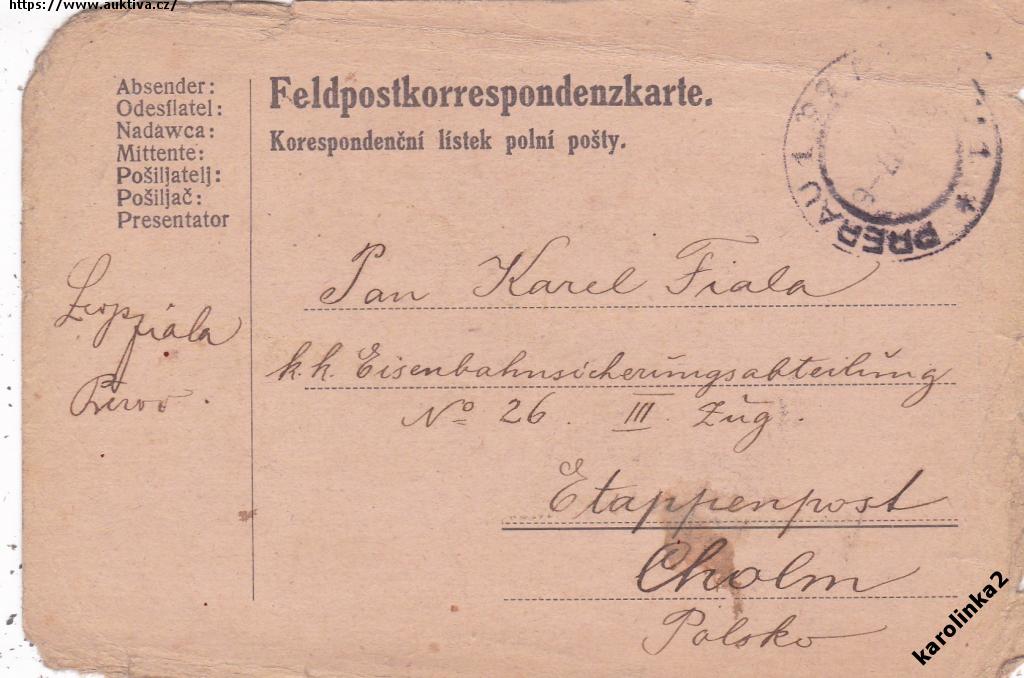 https://www.auktiva.cz/
Absender:
Odesílatel:
Nadawca:
Mittente:
Pošiljatelj:
Pošiljač:
Presentator
Feldpostkorrespondenzkarte.
Korespondenční lístek polní pošty.
PRERAU 1
1 *
Leop Fiala
Přerov.
Pan Karel Fiala
k.k. Eisenbahnsicherungsabteilung
No 26. III. Zug.
Etappenpost
Cholm
Polsko
karolinka2